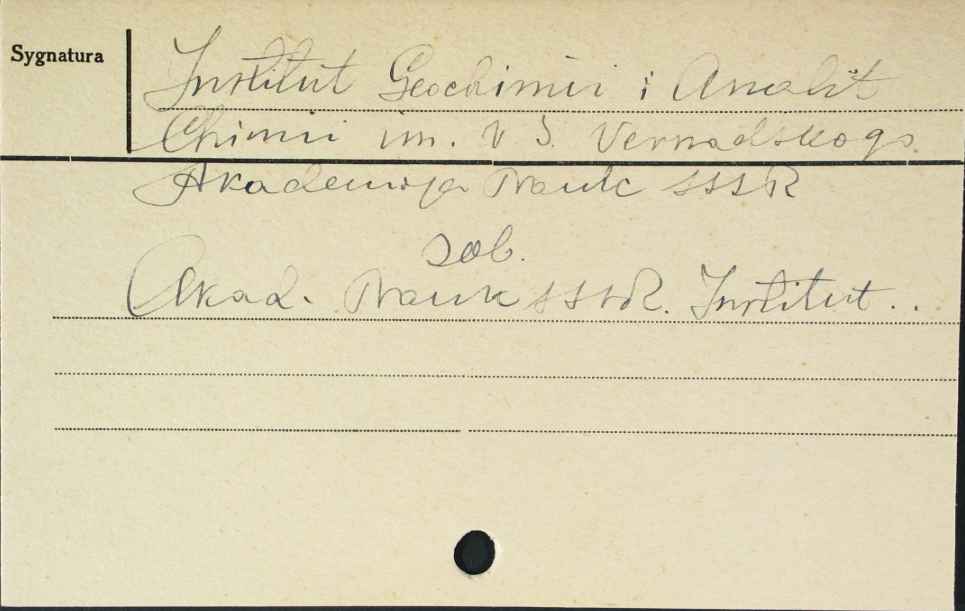 Sygnatura
Institut Geochimii i Analit
Chimii im. V I. Vernadskogo.
Akademija Nauk SSSR
zob.
Akad. Nauk SSSR. Institut . .